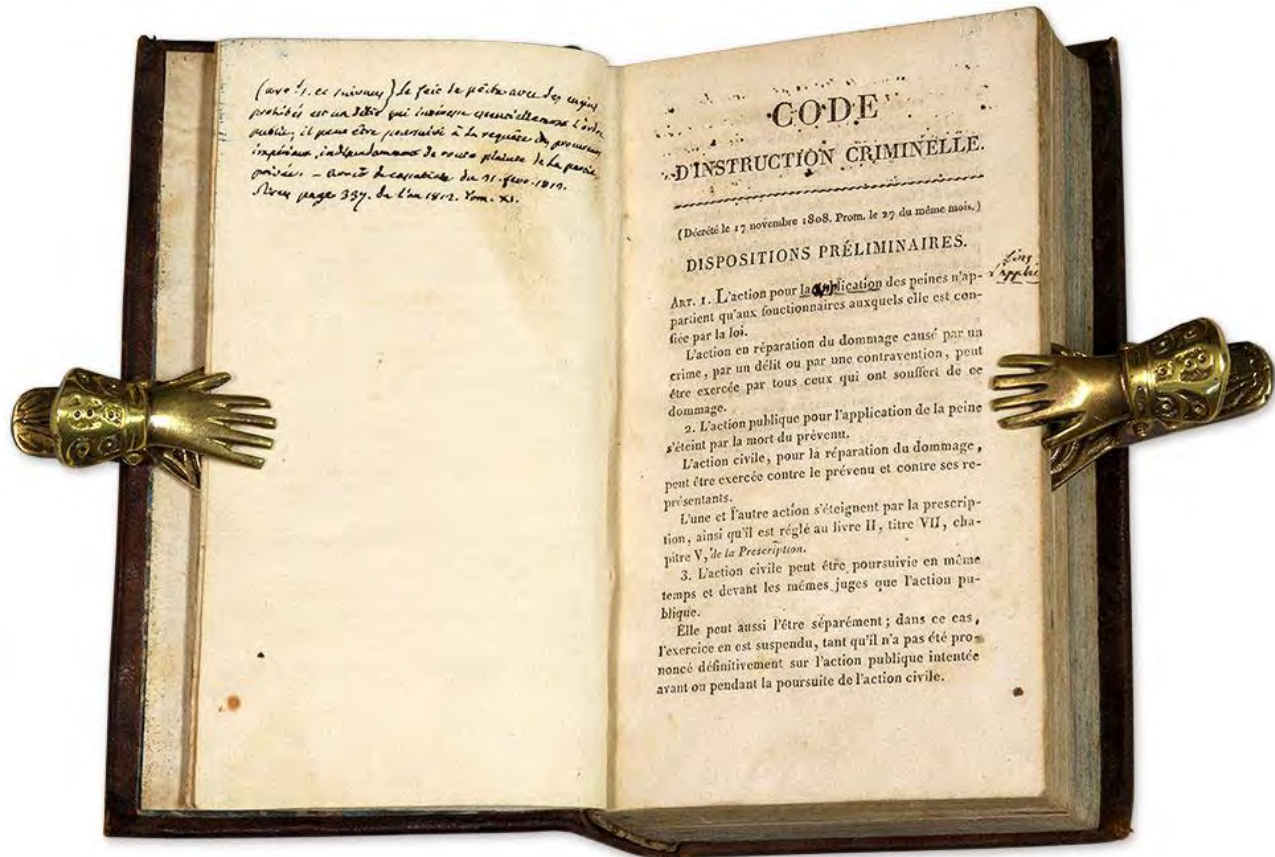 (art 1. et suivans) Le fait de pêche avec des engins
prohibés est un délit qui intéresse essentiellement l'ordre
public, il peut être poursuivi à la requête des procureurs
impériaux, indépendamment de toute plainte de la partie
privée. – arrêt de cassation du 21. fevr. 1812.
Sirey page 337. de l'an 1812. Tom. XI.
CODE
D'INSTRUCTION CRIMINELLE.
(Décrété le 17 novembre 1808. Prom. le 27 du même mois.)
DISPOSITIONS PRÉLIMINAIRES.
ART. 1. L'action pour la application des peines n'ap-
partient qu'aux fonctionnaires auxquels elle est con-
fiée par la loi.
L'action en réparation du dommage causé par un
crime, par un délit ou par une contravention, peut
être exercée par tous ceux qui ont souffert de ce
dommage.
2. L'action publique pour l'application de la peine
s'éteint par la mort du prévenu.
L'action civile, pour la réparation du dommage,
peut être exercée contre le prévenu et contre ses re-
présentants.
L'une et l'autre action s'éteignent par la prescrip-
tion, ainsi qu'il est réglé au livre II, titre VII, cha-
pitre V, de la Prescription.
3. L'action civile peut être poursuivie en même
temps et devant les mêmes juges que l'action pu-
blique.
Elle peut aussi l'être séparément; dans ce cas,
l'exercice en est suspendu, tant qu'il n'a pas été pro-
noncé définitivement sur l'action publique intentée
avant ou pendant la poursuite de l'action civile.